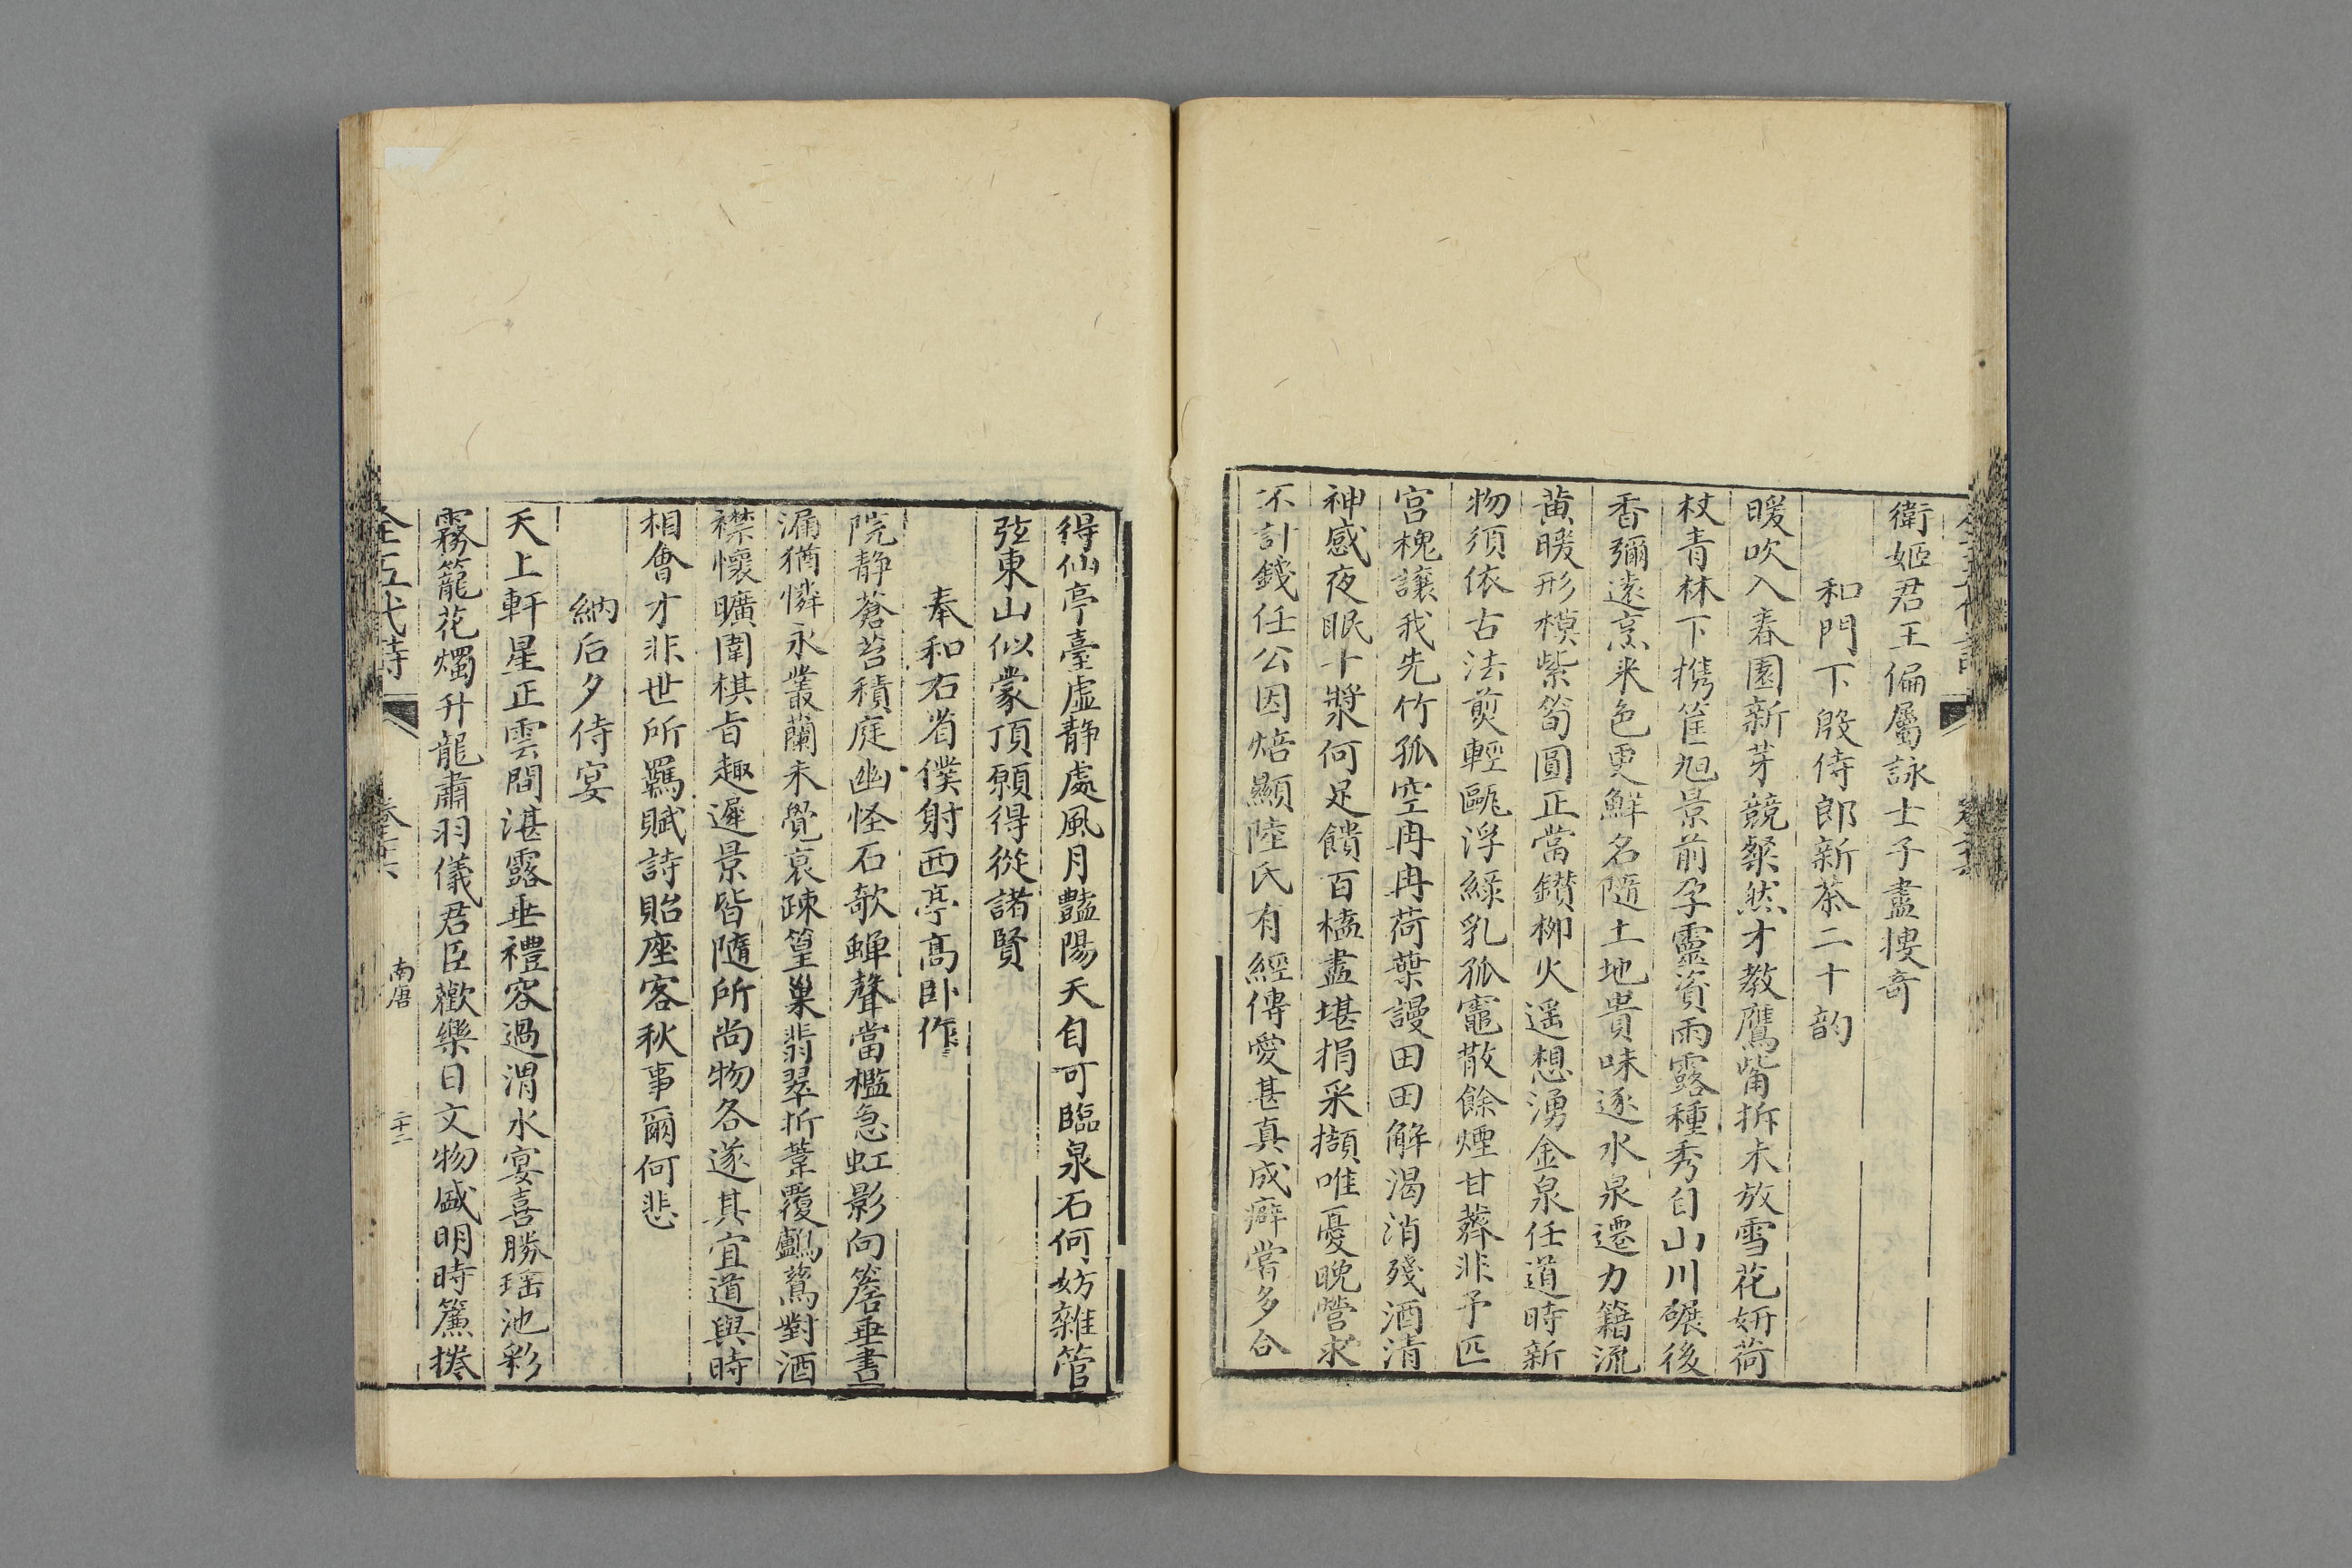 衛姬君王偏屬詠士子盡摟奇
和門下殷侍郎新茶二十韵
暖吹入春園新芽競粲然才教鷹觜拆未放雪花妍荷
杖青林下攜筐旭景前孕靈資雨露種秀自山川碾後
香彌遠烹来色更鮮名隨土地貴味逐水泉遷力籍流
黃暖形模紫筍圓正當鑚柳火遥想湧金泉任道時新
物須依古法煎輕甌浮綠乳孤竈散餘煙甘薺非予匹
宮槐讓我先竹孤空冉冉荷葉謾田田解渴消殘酒清
神感夜眠十漿何足饋百榼盡堪捐采擷唯憂晚營求
不計錢任公因焙顯陸氏有經傳愛甚真成癖嘗多合
得仙亭臺虛静處風月豔陽天自可臨泉石何妨雜管
弦東山似蒙頂願得從諸賢
奉和右省僕射西亭高卧作
院静蒼苔積庭幽怪石欹蟬聲當檻急虹影向簷垂晝
漏猶憐永叢蘭未覺衰疎篁巢翡翠折葦覆鸕鶿對酒
襟懷曠圍棋旨趣遲景皆隨所尚物各遂其宜道與時
相會才非世所羈賦詩貽座客秋事爾何悲
納后夕侍宴
天上軒星正雲間湛露垂禮容過渭水宴喜勝瑶池彩
霧籠花燭升龍肅羽儀君臣歡樂日文物盛明時簾捲
全五代詩
南唐
二十二